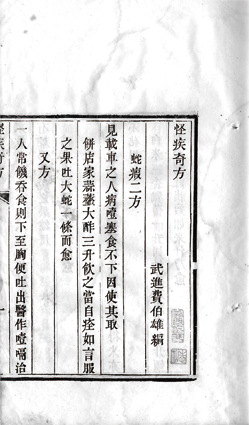 怪疾奇方
武進費伯雄編
蛇瘕二方
見載車之人病噎塞食不下因使其取
餅店家蒜虀大酢三升飲之當自痊如言服
之果吐大蛇一條而愈
又方
一人常饑吞食則下至胸便吐出醫作噎嗝治
怪疾奇方
一